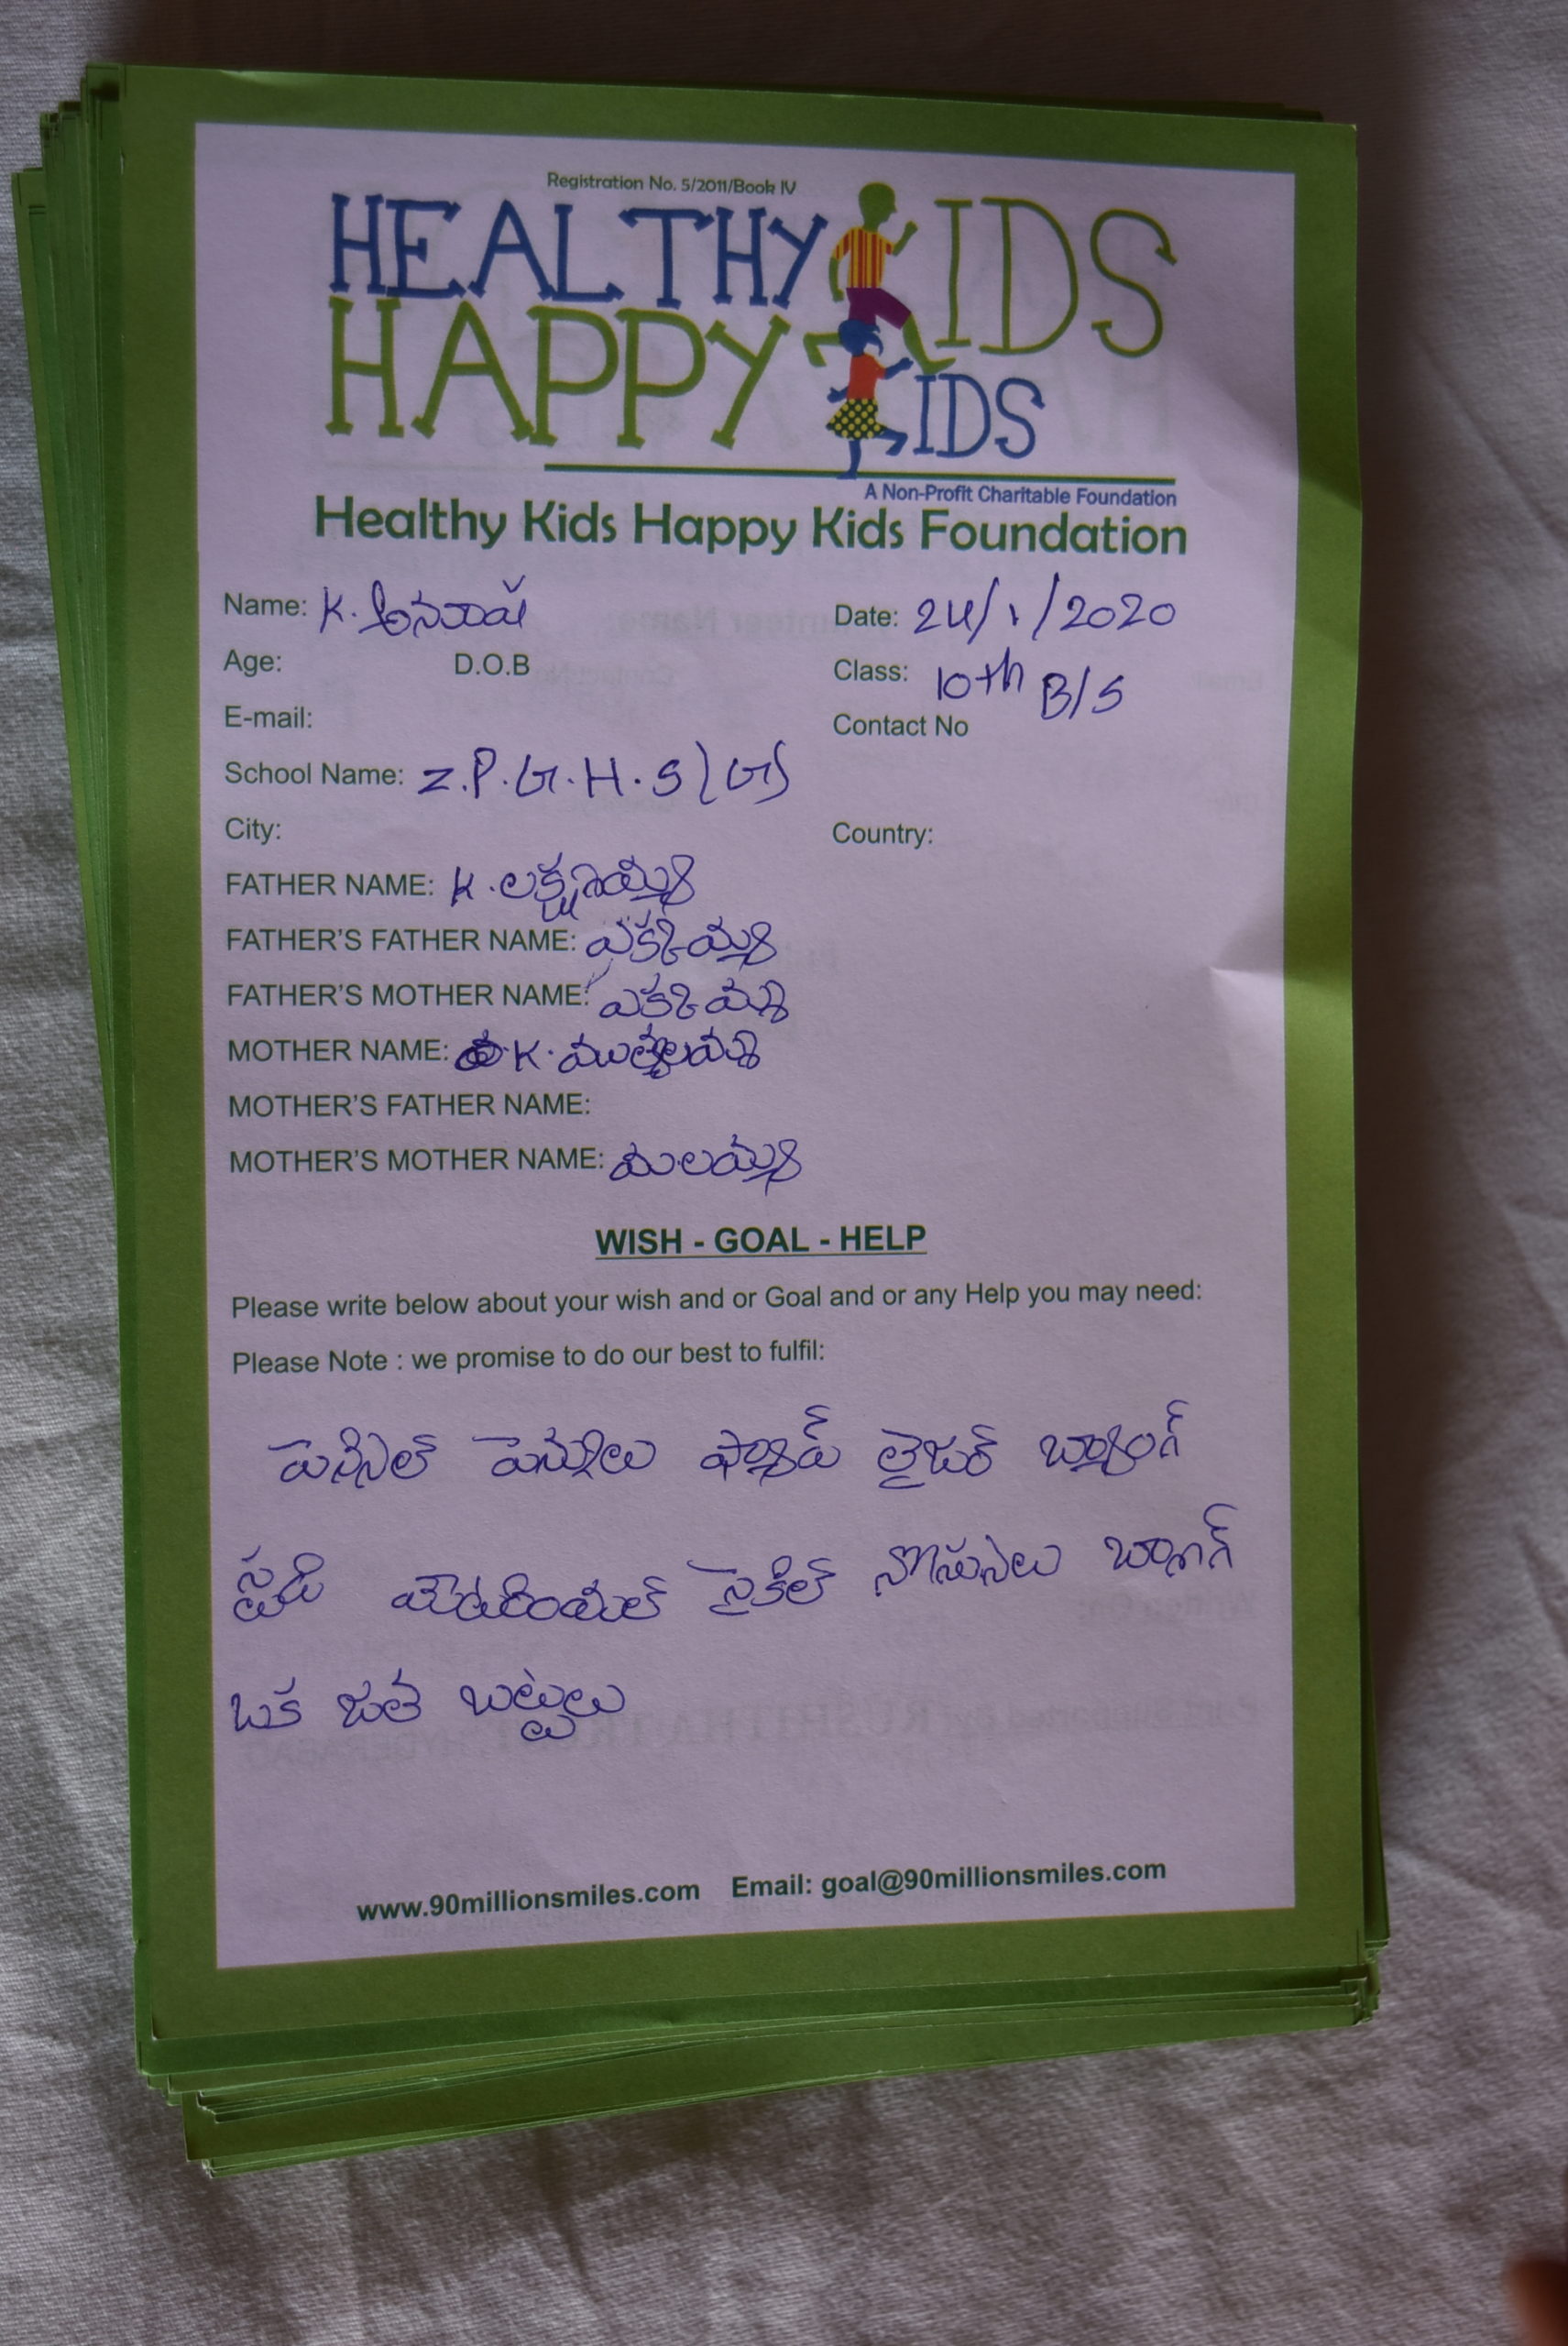 Registration No. 5/2011/Book IV
HEALTHY KIDS
HAPPY KIDS
A Non-Profit Charitable Foundation
Healthy Kids Happy Kids Foundation
Name: K. Date: 24/1/2020
Age: D.O.B Class: 10th B/S
E-mail: Contact No
School Name: Z.P.G.H.S (G)
City: Country:
FATHER NAME: K.
FATHER'S FATHER NAME: ఎక్కమ్మ
FATHER'S MOTHER NAME: ఎక్కమ్మ
MOTHER NAME: K. ముత్యాలమ్మ
MOTHER'S FATHER NAME:
MOTHER'S MOTHER NAME:
WISH - GOAL - HELP
Please write below about your wish and or Goal and or any Help you may need:
Please Note : we promise to do our best to fulfil:
పెన్సిల్ పెన్నులు ప్యాడ్ బ్యాంగ్
స్టడి సైకిల్
ఒక జత బట్టలు
www.90millionsmiles.com Email: goal@90millionsmiles.com